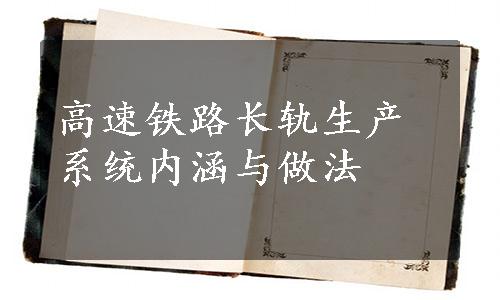 高速铁路长轨生产
系统内涵与做法